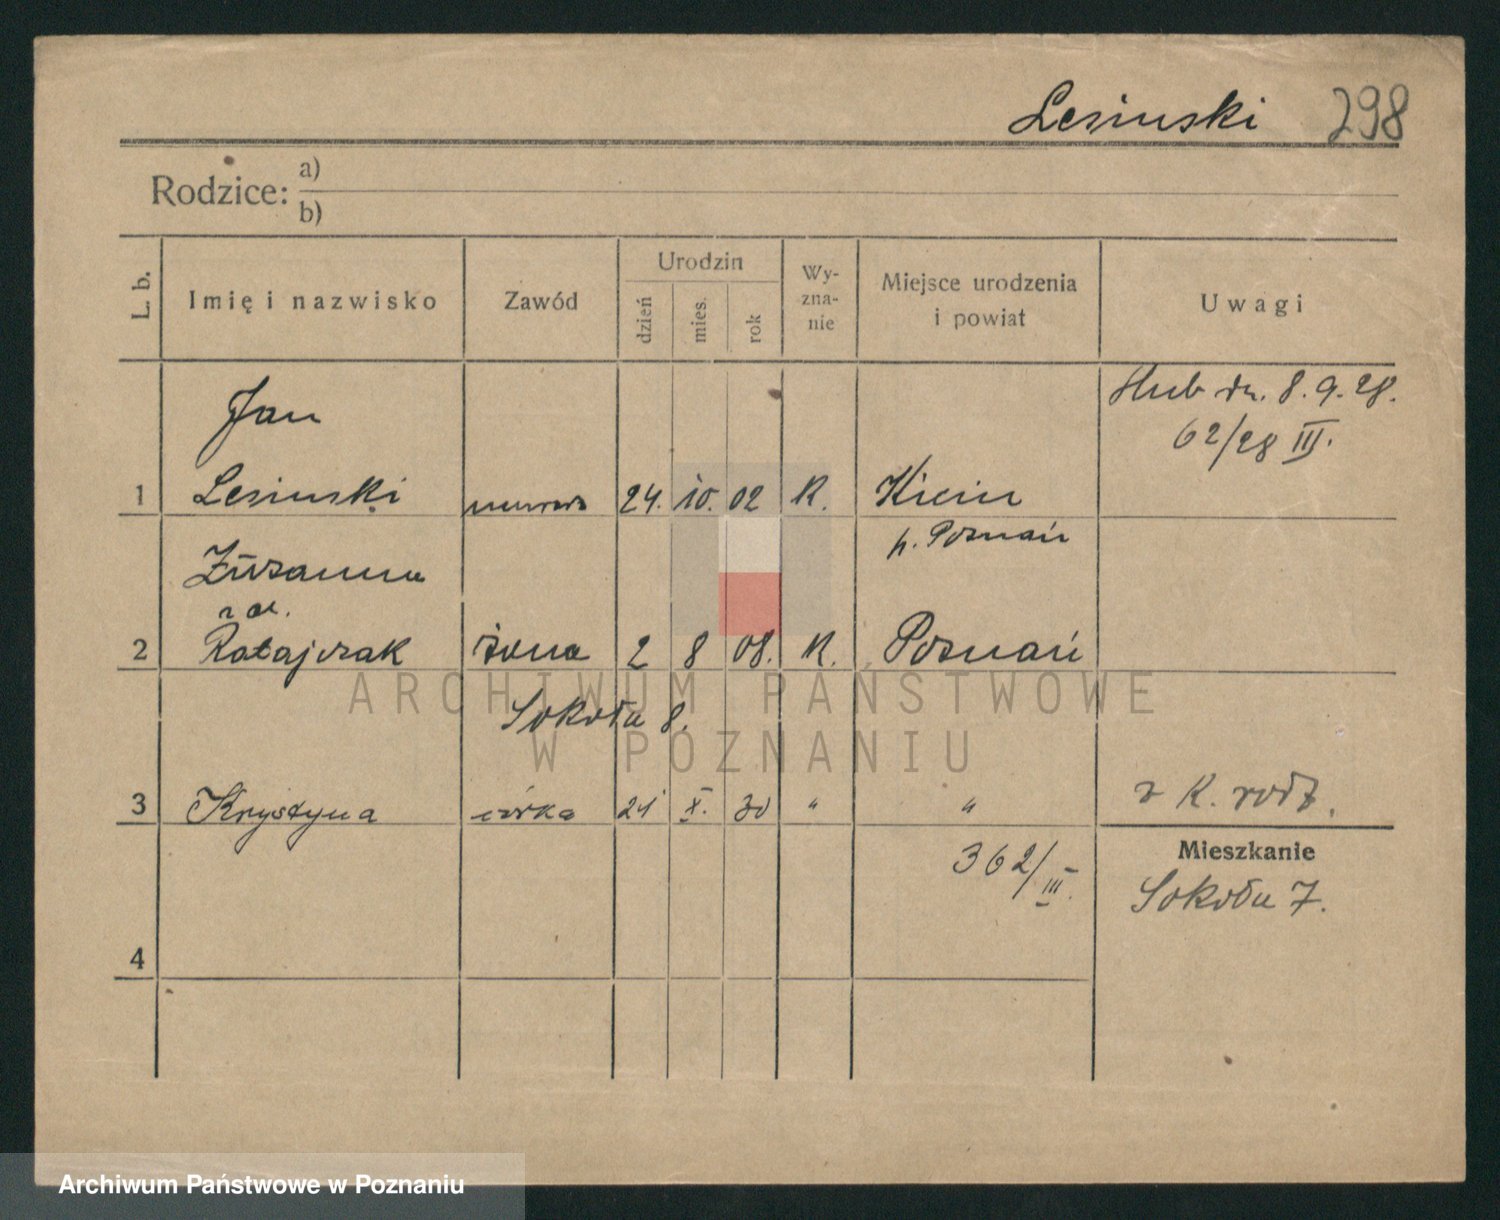 Lesinski 298
Rodzice: a)
b)
L. b. Imię i nazwisko Zawód Urodzin dzień mies. rok Wy-zna-nie Miejsce urodzenia i powiat Uwagi
Jan
ślub dn. 8.9.28.
62/28 III.
1 Lesinski 24. 10. 02 K. Kicin
p. Poznań
Zuzanna
z d.
2 Ratajczak żona 2 8 08. K. Poznań
ARCHIWUM PAŃSTWOWE
Sokoła 8.
W POZNANIU
3 Krystyna córka 21 X. 30 " " z K. rodz.
Mieszkanie
362/III.
Sokoła 7.
4
Archiwum Państwowe w Poznaniu